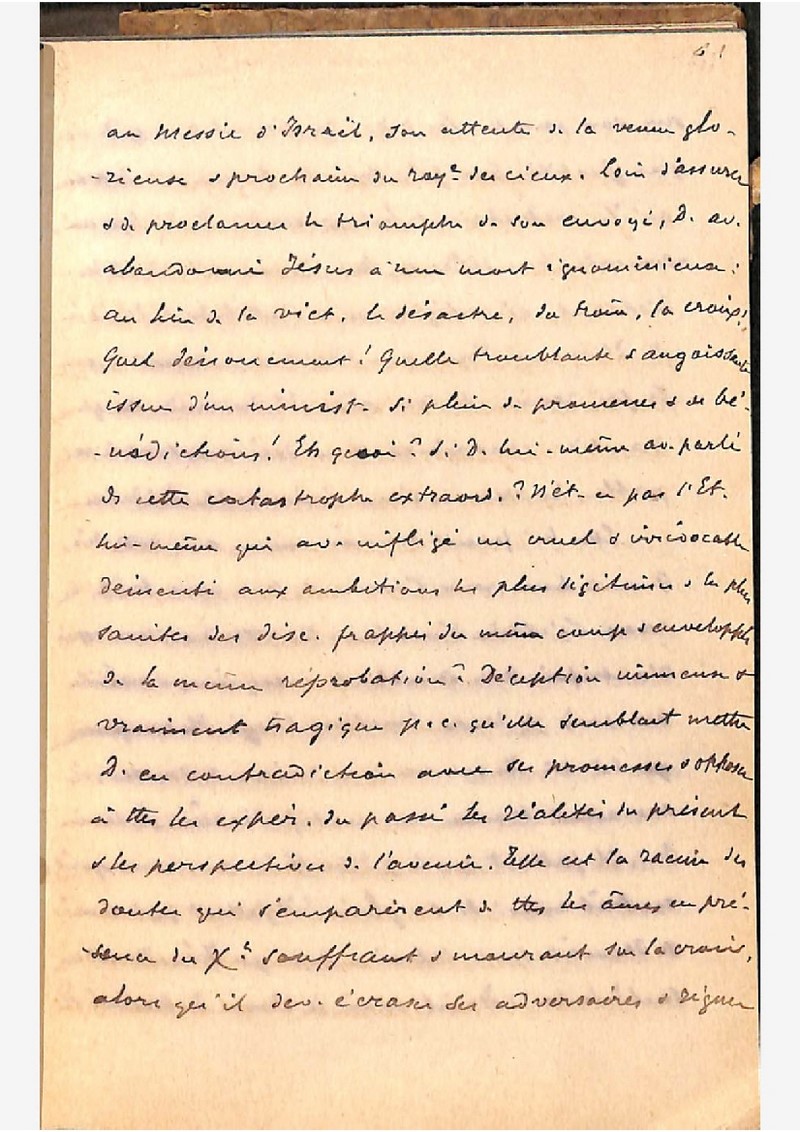 61
au Messie d'Israël, son attente de la venue glo-
-rieuse & prochaine du roy.e des cieux. Loin d'assurer
& de proclamer le triomphe de son envoyé, D. av.
abandonné Jésus à une mort ignominieuse :
au lieu de la vict. le désastre, du trône, la croix !
Quel dénouement ! Quelle troublante & angoissante
issue d'un minist. si plein de promesses & de bé-
-nédictions ! Eh quoi ? Si D. lui-même av. parlé
ds cette catastrophe extraord. ? N'ét.-ce pas l'Et.
lui-même qui av. infligé un cruel & irrévocable
démenti aux ambitions les plus légitimes & les plus
saintes des disc. frappés du même coup & enveloppés
ds la même réprobation ? Déception immense &
vraiment tragique p.c. qu'elle semblait mettre
D. en contradiction avec ses promesses & opposer
à ttes les expér. du passé les réalités du présent
& les perspectives de l'avenir. Telle est la racine des
doutes qui s'emparèrent de ttes les âmes en pré-
-sence du X.t souffrant & mourant sur la croix,
alors qu'il dev. écraser ses adversaires & régner